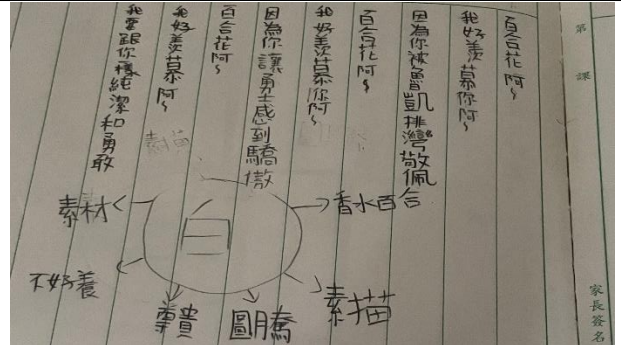 第　課
百合花阿~
我好羨慕你阿~
因為你被魯凱排灣敬佩
百合花阿~
我好羨慕你阿~
因為你讓勇士感到驕傲
百合花阿~
我好羨慕阿~
我要跟你一樣純潔和勇敢
素描
白
香水百合
素描
圖騰
尊貴
不好養
素材
家長簽名